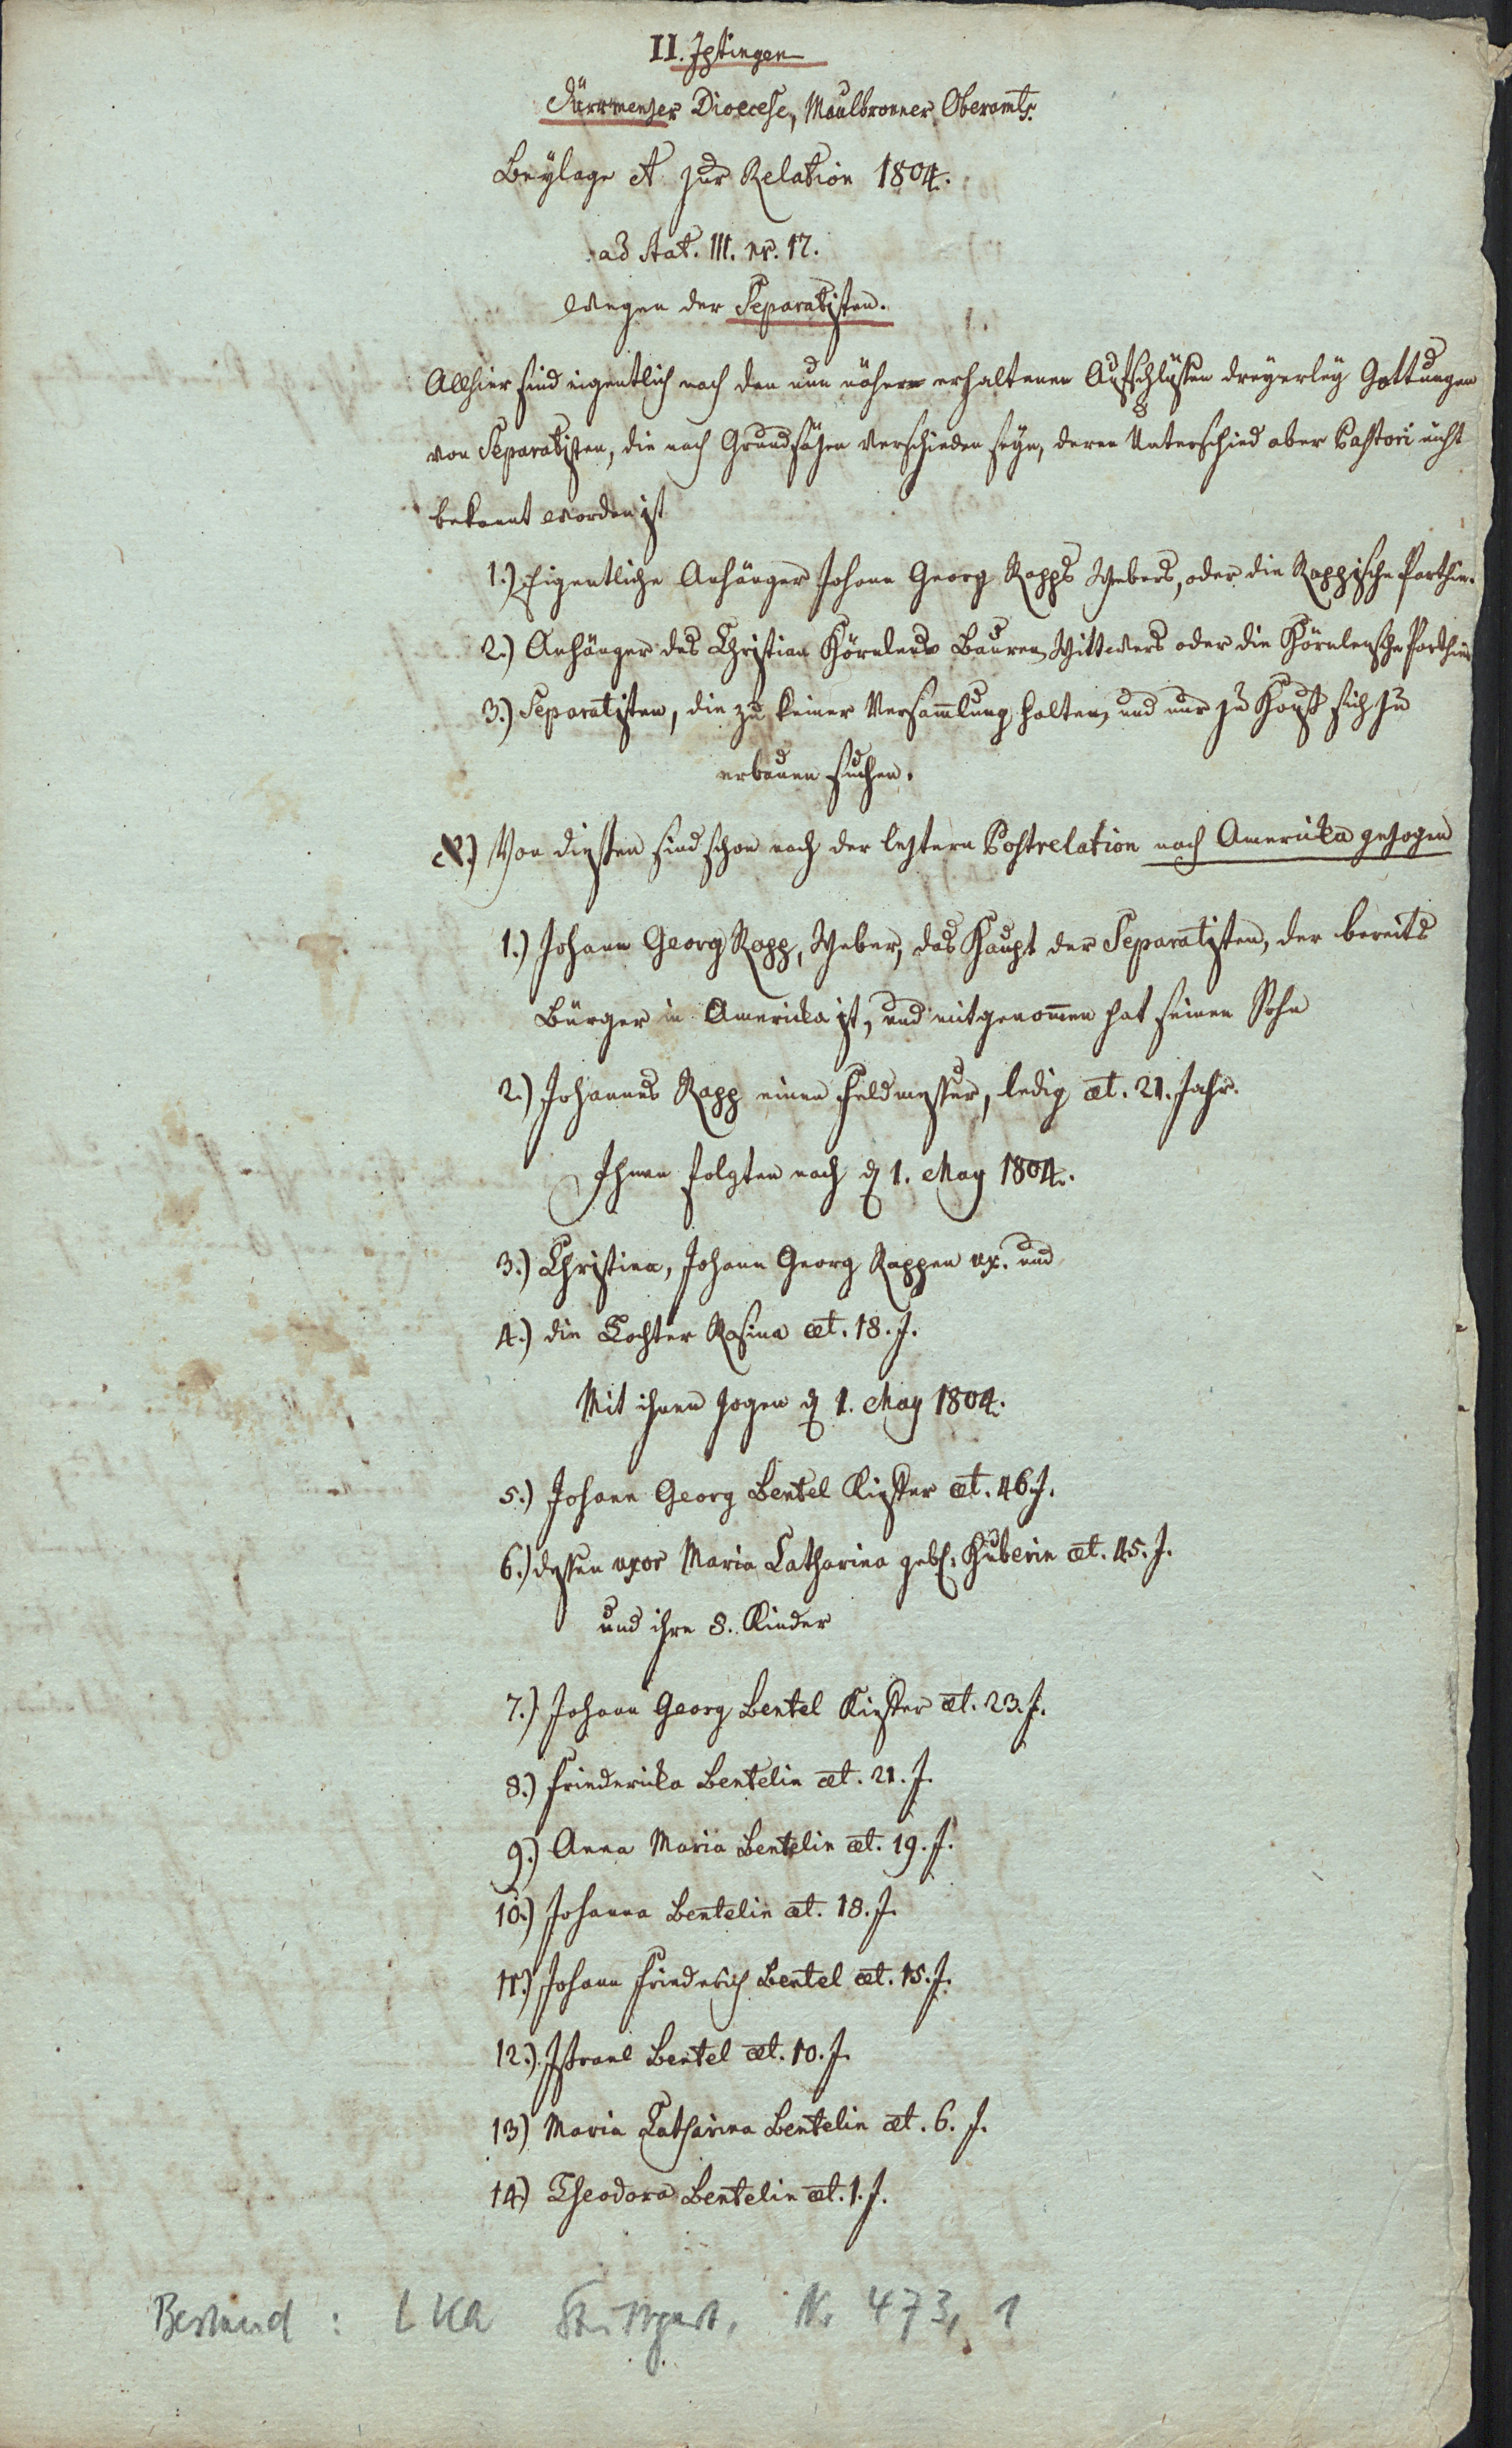 II. Iptingen
Dürrmenzer Dioecese, Maulbronner Oberamts.
Beylage A zur Relation 1804.
ad Stat. III. nr. 17.
Wegen der Separatisten.
Allhier sind eigentlich nach den nun nähern erhaltenen Aufschlüssen dreyerley Gattungen
von Separatisten, die nach Grundsäzen verschieden seyn, deren Unterschied aber Pastori nicht
bekannt worden ist
1.) Eigentliche Anhänger Johann Georg Rapps Webers, oder die Rappische Parthie.
2.) Anhänger des Christian Hörnlens Bauren, Wittwers oder die Hörnlensche Parthie
3.) Separatisten, die zu keiner Versam̄lung halten, und nur zu Hauß sich zu
erbauen suchen.
A.) Von diesen sind schon nach der leztern Postrelation nach America gezogen
1.) Johann Georg Rapp, Weber, das Haupt der Separatisten, der bereits
Bürger in America ist, und mitgenom̄en hat seinen Sohn
2.) Johannes Rapp einen Feldmesser, ledig æt. 21. Jahr.
Ihnen folgten nach d 1. May 1804.
3.) Christina, Johann Georg Rappen ux. und
4.) die Tochter Rosina æt. 18. J.
Mit ihnen zogen d 1. May 1804.
5.) Johann Georg Bentel Kiefer æt. 46. J.
6.) dessen uxor Maria Catharina geb: Huberin æt. 45. J.
und ihre 8. Kinder
7.) Johann Georg Bentel Kiefer æt. 23. J.
8.) Friedericka Bentelin æt. 21. J.
9.) Anna Maria Bentelin æt. 19. J.
10.) Johanna Bentelin æt. 18. J.
11.) Johann Friederich Bentel æt. 15. J.
12.) Israel Bentel æt. 10. J.
13) Maria Catharina Bentelin æt. 6. J.
14) Theodora Bentelin æt. 1. J.
Bestand: LKA Stuttgart, Nr 473, 1